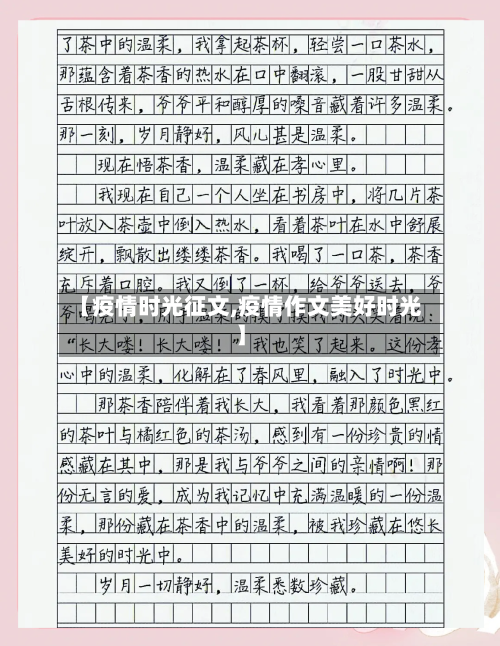 了茶中的温柔，我拿起茶杯，轻尝一口茶水，
那蕴含着茶香的热水在口中翻滚，一股甘甜从
舌根传来，爷爷平和醇厚的嗓音藏着许多温柔。
那一刻，岁月静好，风儿甚是温柔。
现在悟茶香，温柔藏在孝心里。
我现在自己一个人坐在书房中，将几片茶
叶放入茶壶中倒入热水，看着茶叶在水中舒展
绽开，飘散出缕缕茶香。我喝了一口茶，茶香
充斥着口腔。我又倒了一杯，给爷爷送去，爷
【疫情时光征文,疫情作文美好时光
】
“长大喽！长大喽！”我也笑了起来。这份孝
心中的温柔，化解在了春风里，融入了时光中。
那茶香陪伴着我长大，我看着那颜色黑红
的茶叶与橘红色的茶汤，感到有一份珍贵的情
感藏在其中，那是我与爷爷之间的亲情啊！那
份无言的爱，成为我记忆中充满温暖的一份温
柔，那份藏在茶香中的温柔，被我珍藏在悠长
美好的时光中。
岁月一切静好，温柔悉数珍藏。